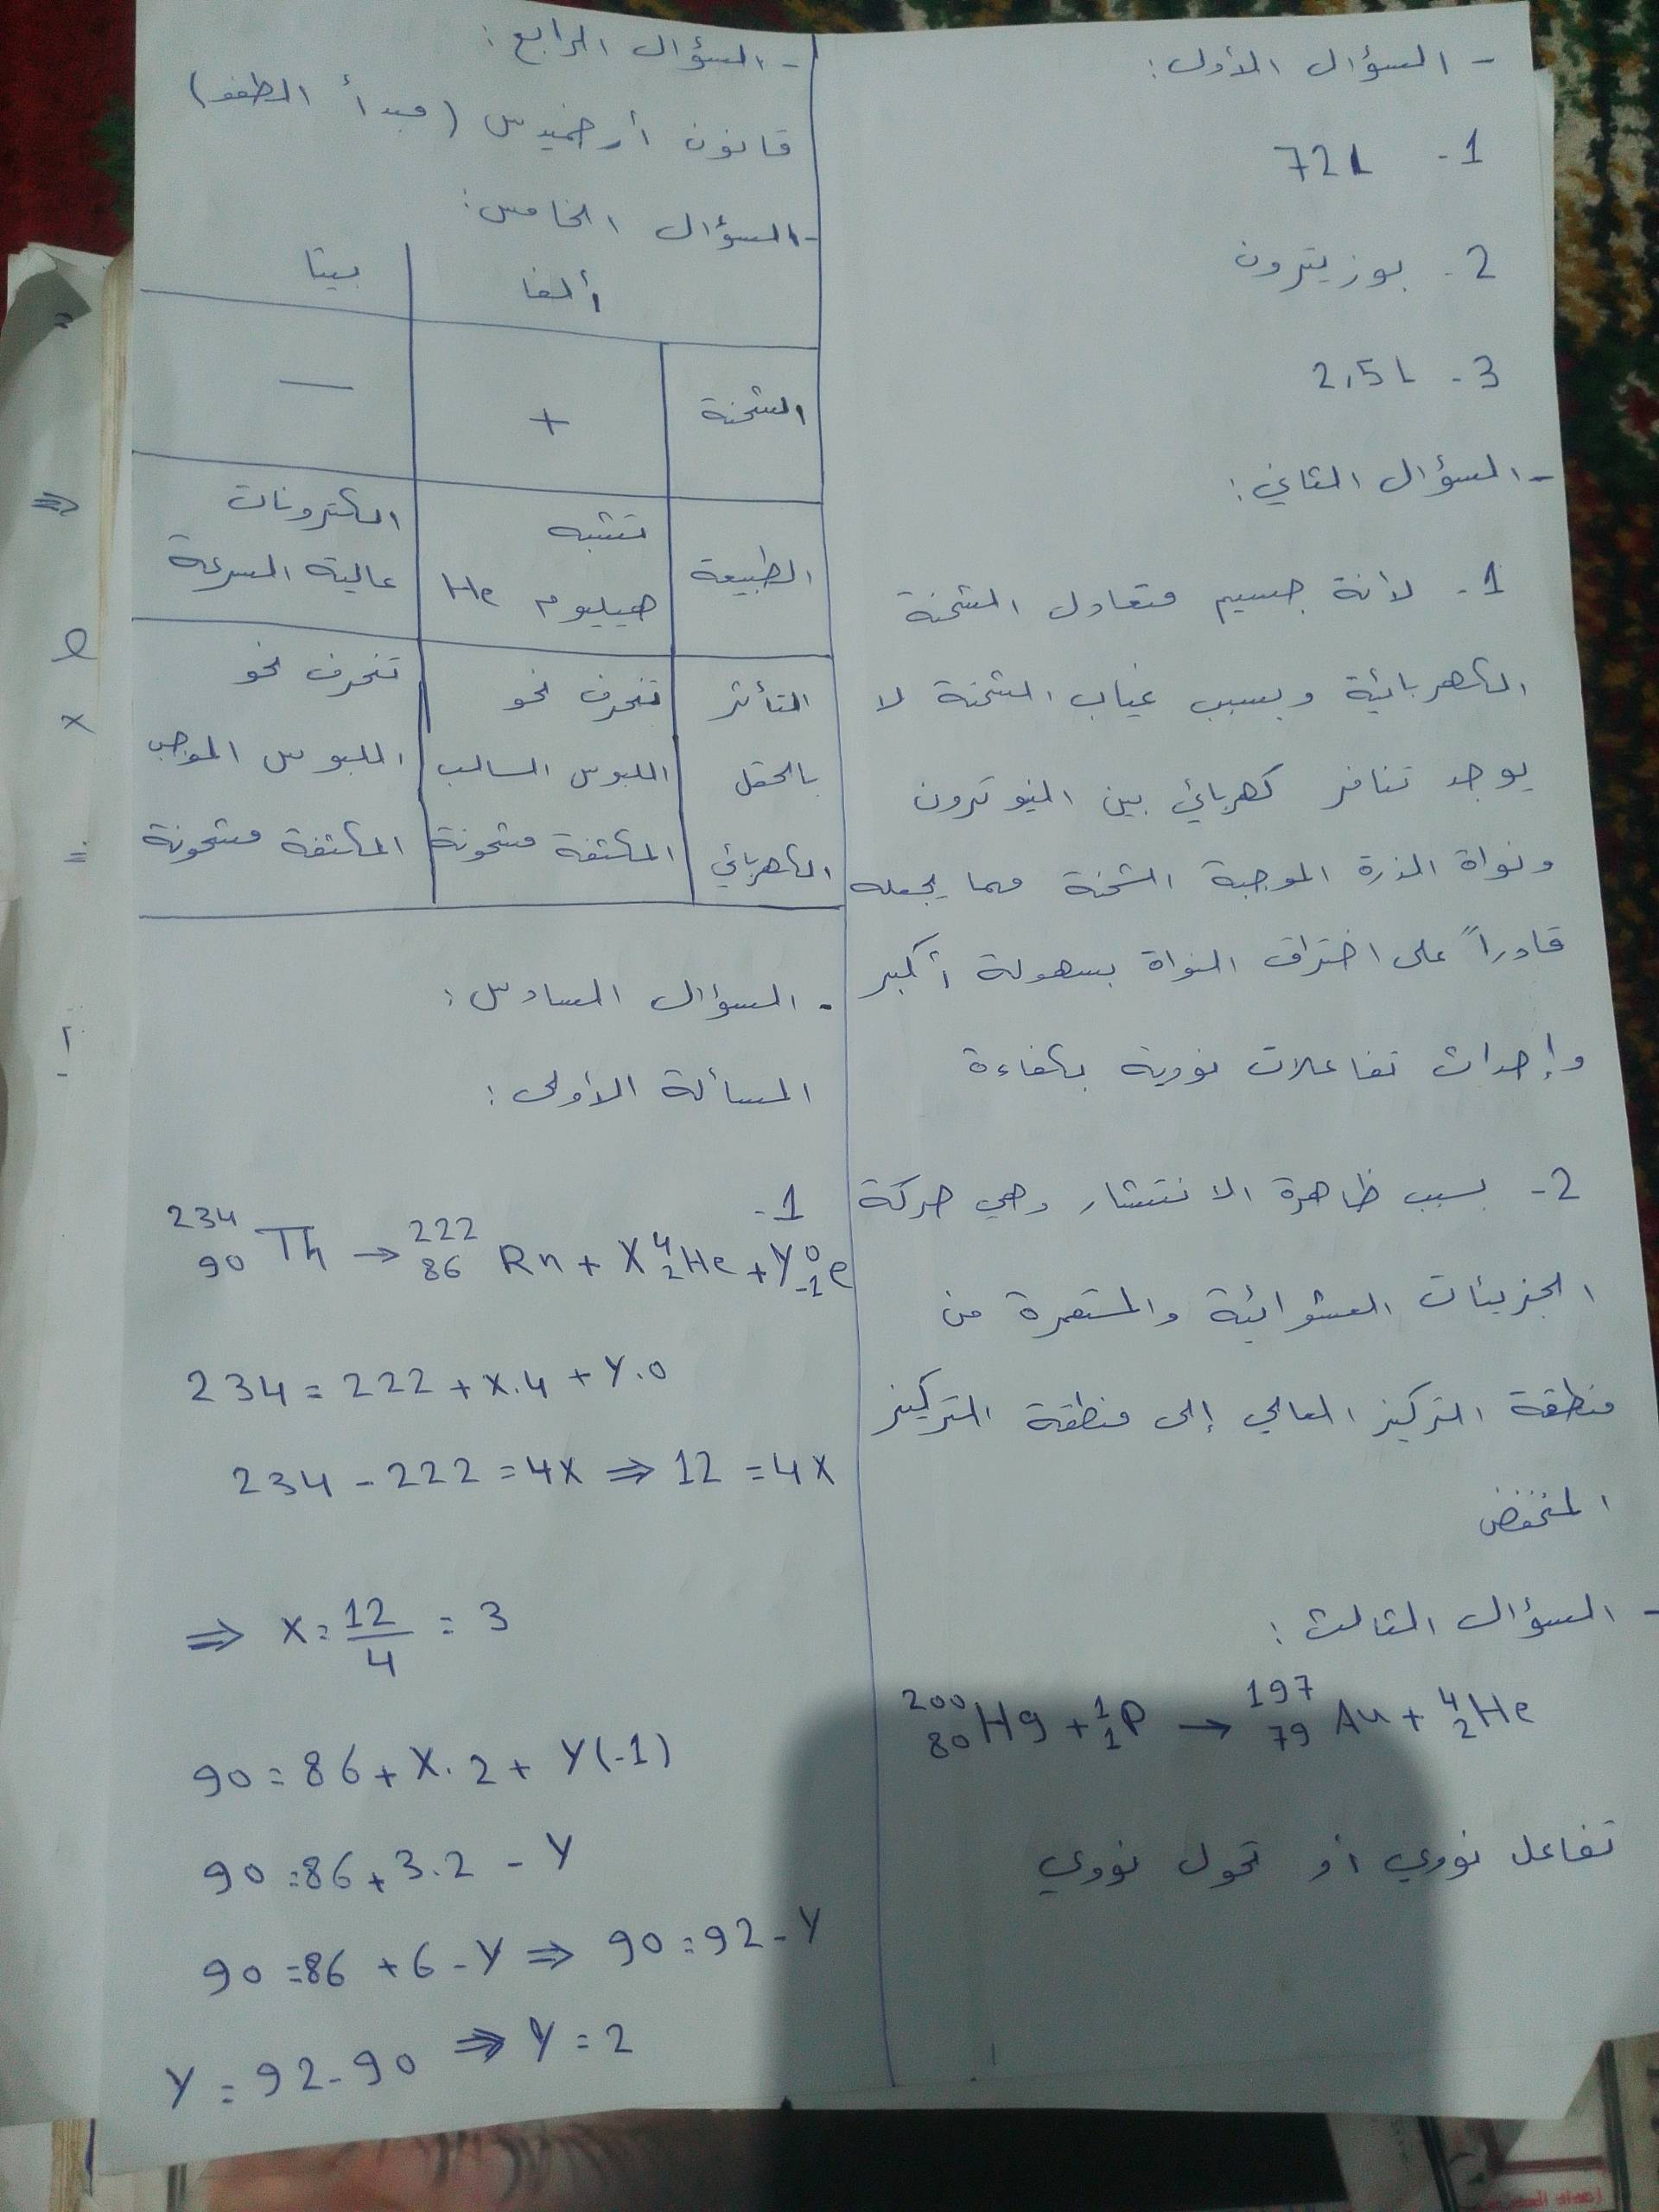 - السؤال الأول:
1- 72L
2- بوزيترون
3- 2,5L
- السؤال الثاني:
1- لأنة جسيم متعادل الشحنة
الكهربائية وبسبب غياب الشحنة لا
يوجد تنافر كهربائي بين النيوترون
ونواة الذرة الموجبة الشحنة مما يجعله
قادراً على اختراق النواة بسهولة أكبر
وإحداث تفاعلات نووية بكفاءة
2- بسبب ظاهرة الانتشار وهي حركة
الجزيئات العشوائية والمستمرة من
منطقة التركيز العالي إلى منطقة التركيز
المنخفض
- السؤال الثالث:
²⁰⁰₈₀Hg + ¹₁P → ¹⁹⁷₇₉Au + ⁴₂He
تفاعل نووي أو تحول نووي
- السؤال الرابع:
قانون أرخميدس (مبدأ الطفو)
- السؤال الخامس:
ألفا بيتا
الشحنة + —
الطبيعة تشبه هيليوم He الكترونات عالية السرعة
التأثر بالحقل الكهربائي تنحرف نحو اللبوس السالب المكثفة مشحونة تنحرف نحو اللبوس الموجب المكثفة مشحونة
- السؤال السادس:
المسألة الأولى:
1-
²³⁴₉₀Th → ²²²₈₆Rn + X⁴₂He + Y⁰₋₁e
234 = 222 + X.4 + Y.0
234 - 222 = 4X ⇒ 12 = 4X
⇒ X = 12/4 = 3
90 = 86 + X.2 + Y(-1)
90 = 86 + 3.2 - Y
90 = 86 + 6 - Y ⇒ 90 = 92 - Y
Y = 92 - 90 ⇒ Y = 2